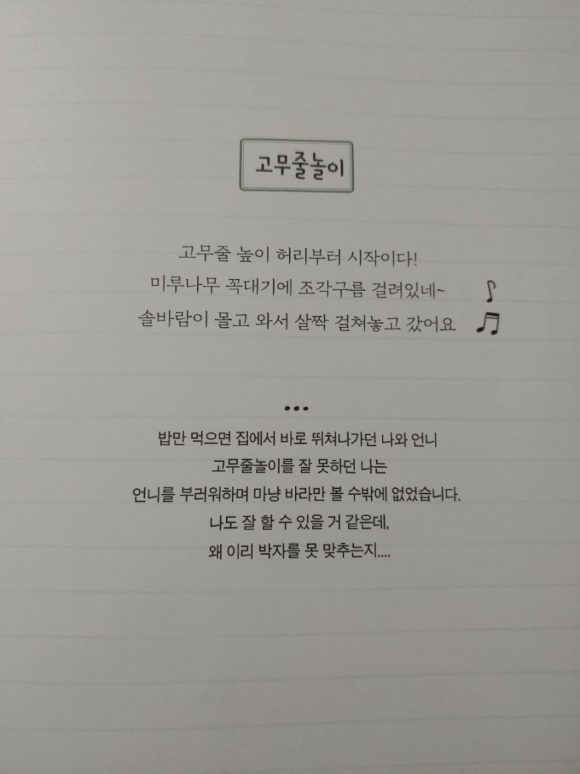 고무줄놀이
고무줄 높이 허리부터 시작이다!
미루나무 꼭대기에 조각구름 걸려있네~
솔바람이 몰고 와서 살짝 걸쳐놓고 갔어요
...
밥만 먹으면 집에서 바로 뛰쳐나가던 나와 언니
고무줄놀이를 잘 못하던 나는
언니를 부러워하며 마냥 바라만 볼 수밖에 없었습니다.
나도 잘 할 수 있을 거 같은데,
왜 이리 박자를 못 맞추는지....